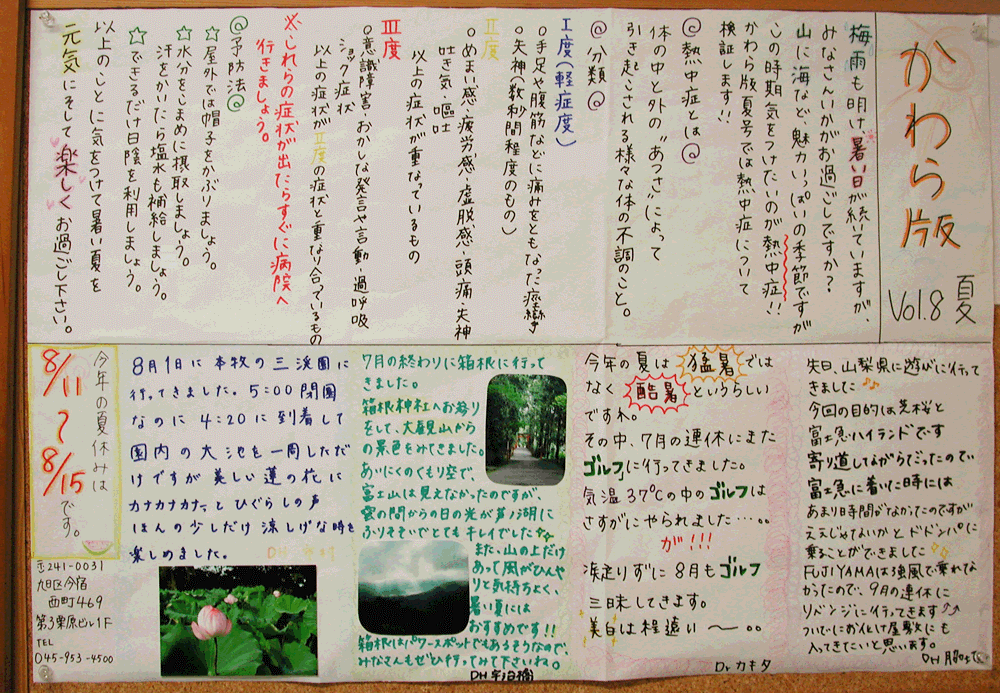 かわら版
Vol.8 夏
梅雨も明け暑い日が続いていますが、
みなさんいかがお過ごしですか？
山に海など、魅力いっぱいの季節ですが
この時期気をつけたいのが熱中症!!
かわら版夏号では熱中症について
検証します!!
◎熱中症とは◎
体の中と外の"あつさ"によって
引き起こされる様々な体の不調のこと。
◎分類◎
Ⅰ度(軽症度)
○手足や腹筋などに痛みをともなった痙攣
○失神(数秒間程度のもの)
Ⅱ度
○めまい感・疲労感・虚脱感・頭痛・失神
吐き気・嘔吐
以上の症状が重なっているもの
Ⅲ度
○意識障害・おかしな発言や言動・過呼吸
ショック症状
以上の症状がⅡ度の症状と重なり合っているもの
※これらの症状が出たらすぐに病院へ
行きましょう。
◎予防法◎
☆屋外では帽子をかぶりましょう。
☆水分をこまめに摂取しましょう。
汗をかいたら塩水も補給しましょう。
☆できるだけ日陰を利用しましょう。
以上のことに気をつけて暑い夏を
元気にそして楽しくお過ごし下さい。
先日、山梨県に遊びに行って
きました♪♪
今回の目的は芝桜と
富士急ハイランドです
寄り道しながらだったので
富士急に着いた時には
あまり時間がなかったのですが
ええじゃないかと ドドンパに
乗ることができました
FUJIYAMAは強風で乗れな
かったので、9月の連休に
リベンジに行ってきます
ついでにお化け屋敷にも
入ってきたいと思います。
今年の夏は猛暑では
なく 酷暑というらしい
ですね。
その中、7月の連休にまた
ゴルフに行ってきました。
気温37℃の中のゴルフは
さすがにやられました…。。
が!!!
懲りずに8月もゴルフ
三昧してきます。
美白は程遠い〜。。
Dr.カキタ
7月の終わりに箱根に行って
きました。
箱根神社へお参り
をして、大観山から
の景色をみてきました。
あいにくのくもり空で、
富士山は見えなかったのですが、
雲の間からの日の光が芦ノ湖に
ふりそそいでとてもキレイでした☆
また、山の上だけ
あって風がひんや
りと気持ちよく、
暑い夏には
おすすめです!!
箱根はパワースポットでもあるそうなので、
みなさんもぜひ行ってみて下さいね。
8月1日に本牧の三渓園に
行ってきました。5:00閉園
なのに 4:20に到着して
園内の大池を一周しただ
けですが 美しい蓮の花に
カナカナカナ〜とひぐらしの声
ほんの少しだけ 涼しげな時を
楽しめました。
今年の夏休みは
8/11
〜
8/15
です。
〒241-0031
旭区今宿
西町469
第3栗原ビル1F
TEL
045-953-4500